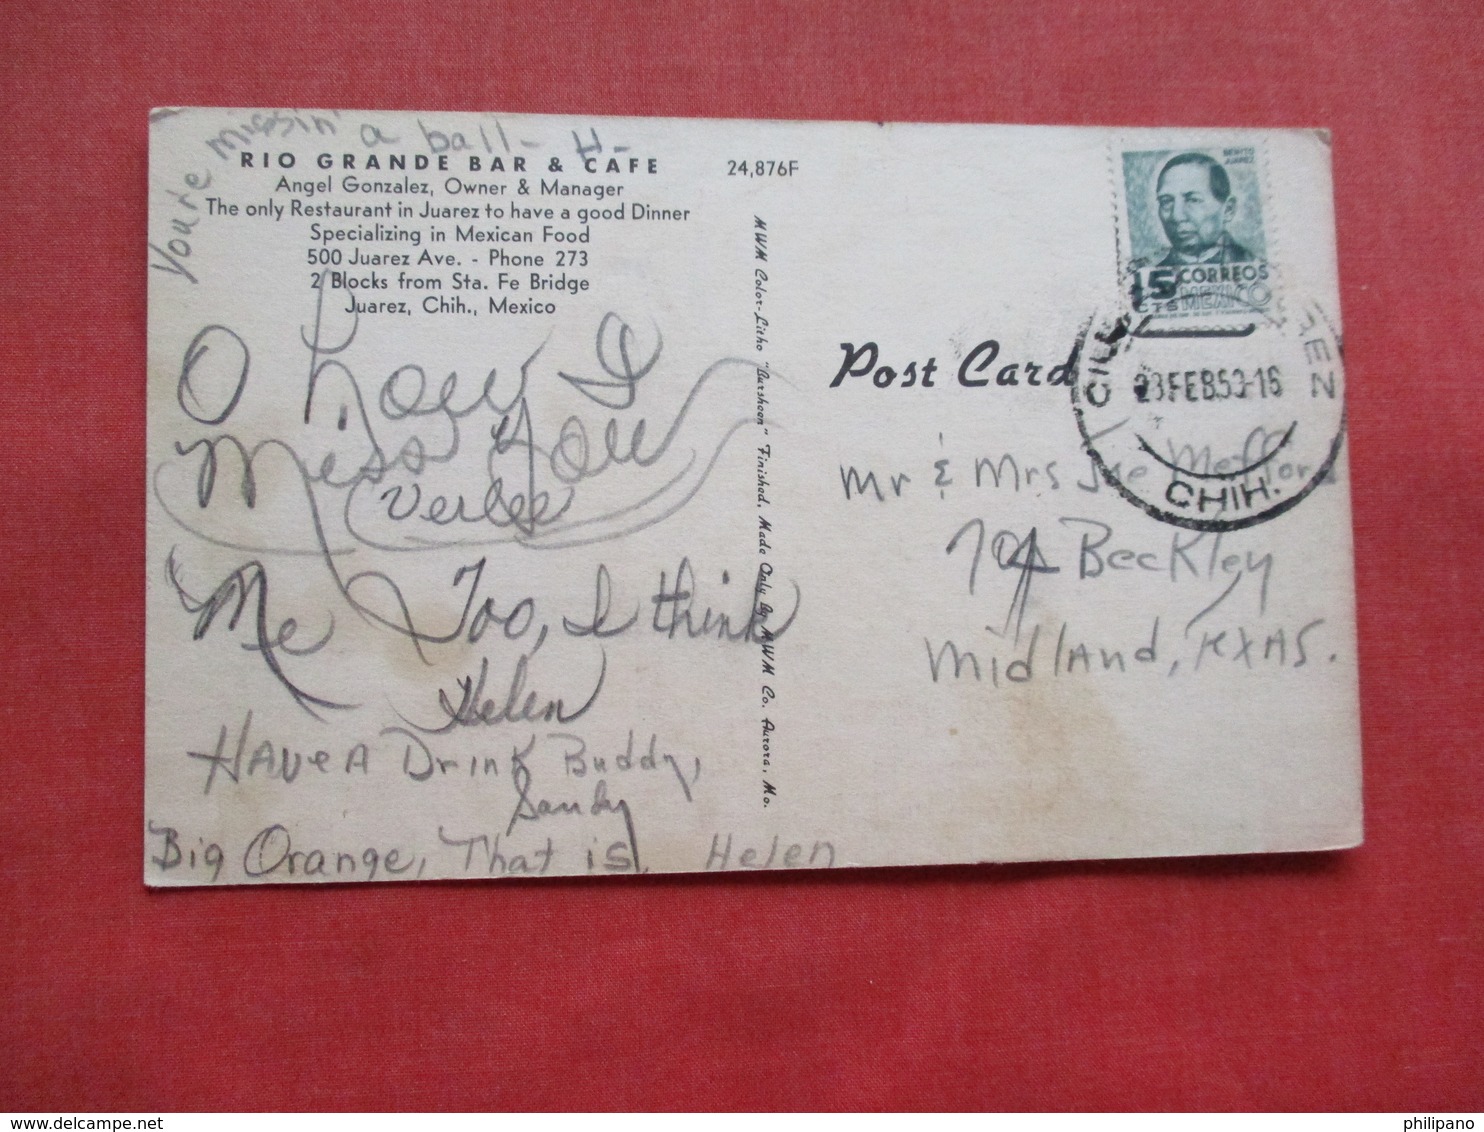 You're missin' a ball - H -
RIO GRANDE BAR & CAFE
Angel Gonzalez, Owner & Manager
The only Restaurant in Juarez to have a good Dinner
Specializing in Mexican Food
500 Juarez Ave. - Phone 273
2 Blocks from Sta. Fe Bridge
Juarez, Chih., Mexico
O how I
Miss You
Verlee
Me Too, I think
Helen
Have A Drink Buddy,
Sandy
Big Orange, That is, Helen
24,876F
MWM Color-Litho "Bursheen" Finished, Made Only By MWM Co. Aurora, Mo.
Post Card
BENITO
JUAREZ
15 CORREOS
CTS MEXICO
23 FEB 53-16
CHIH.
Mr & Mrs Joe Mefford
704 Beckley
Midland, Texas.
philipano
delcampe.net